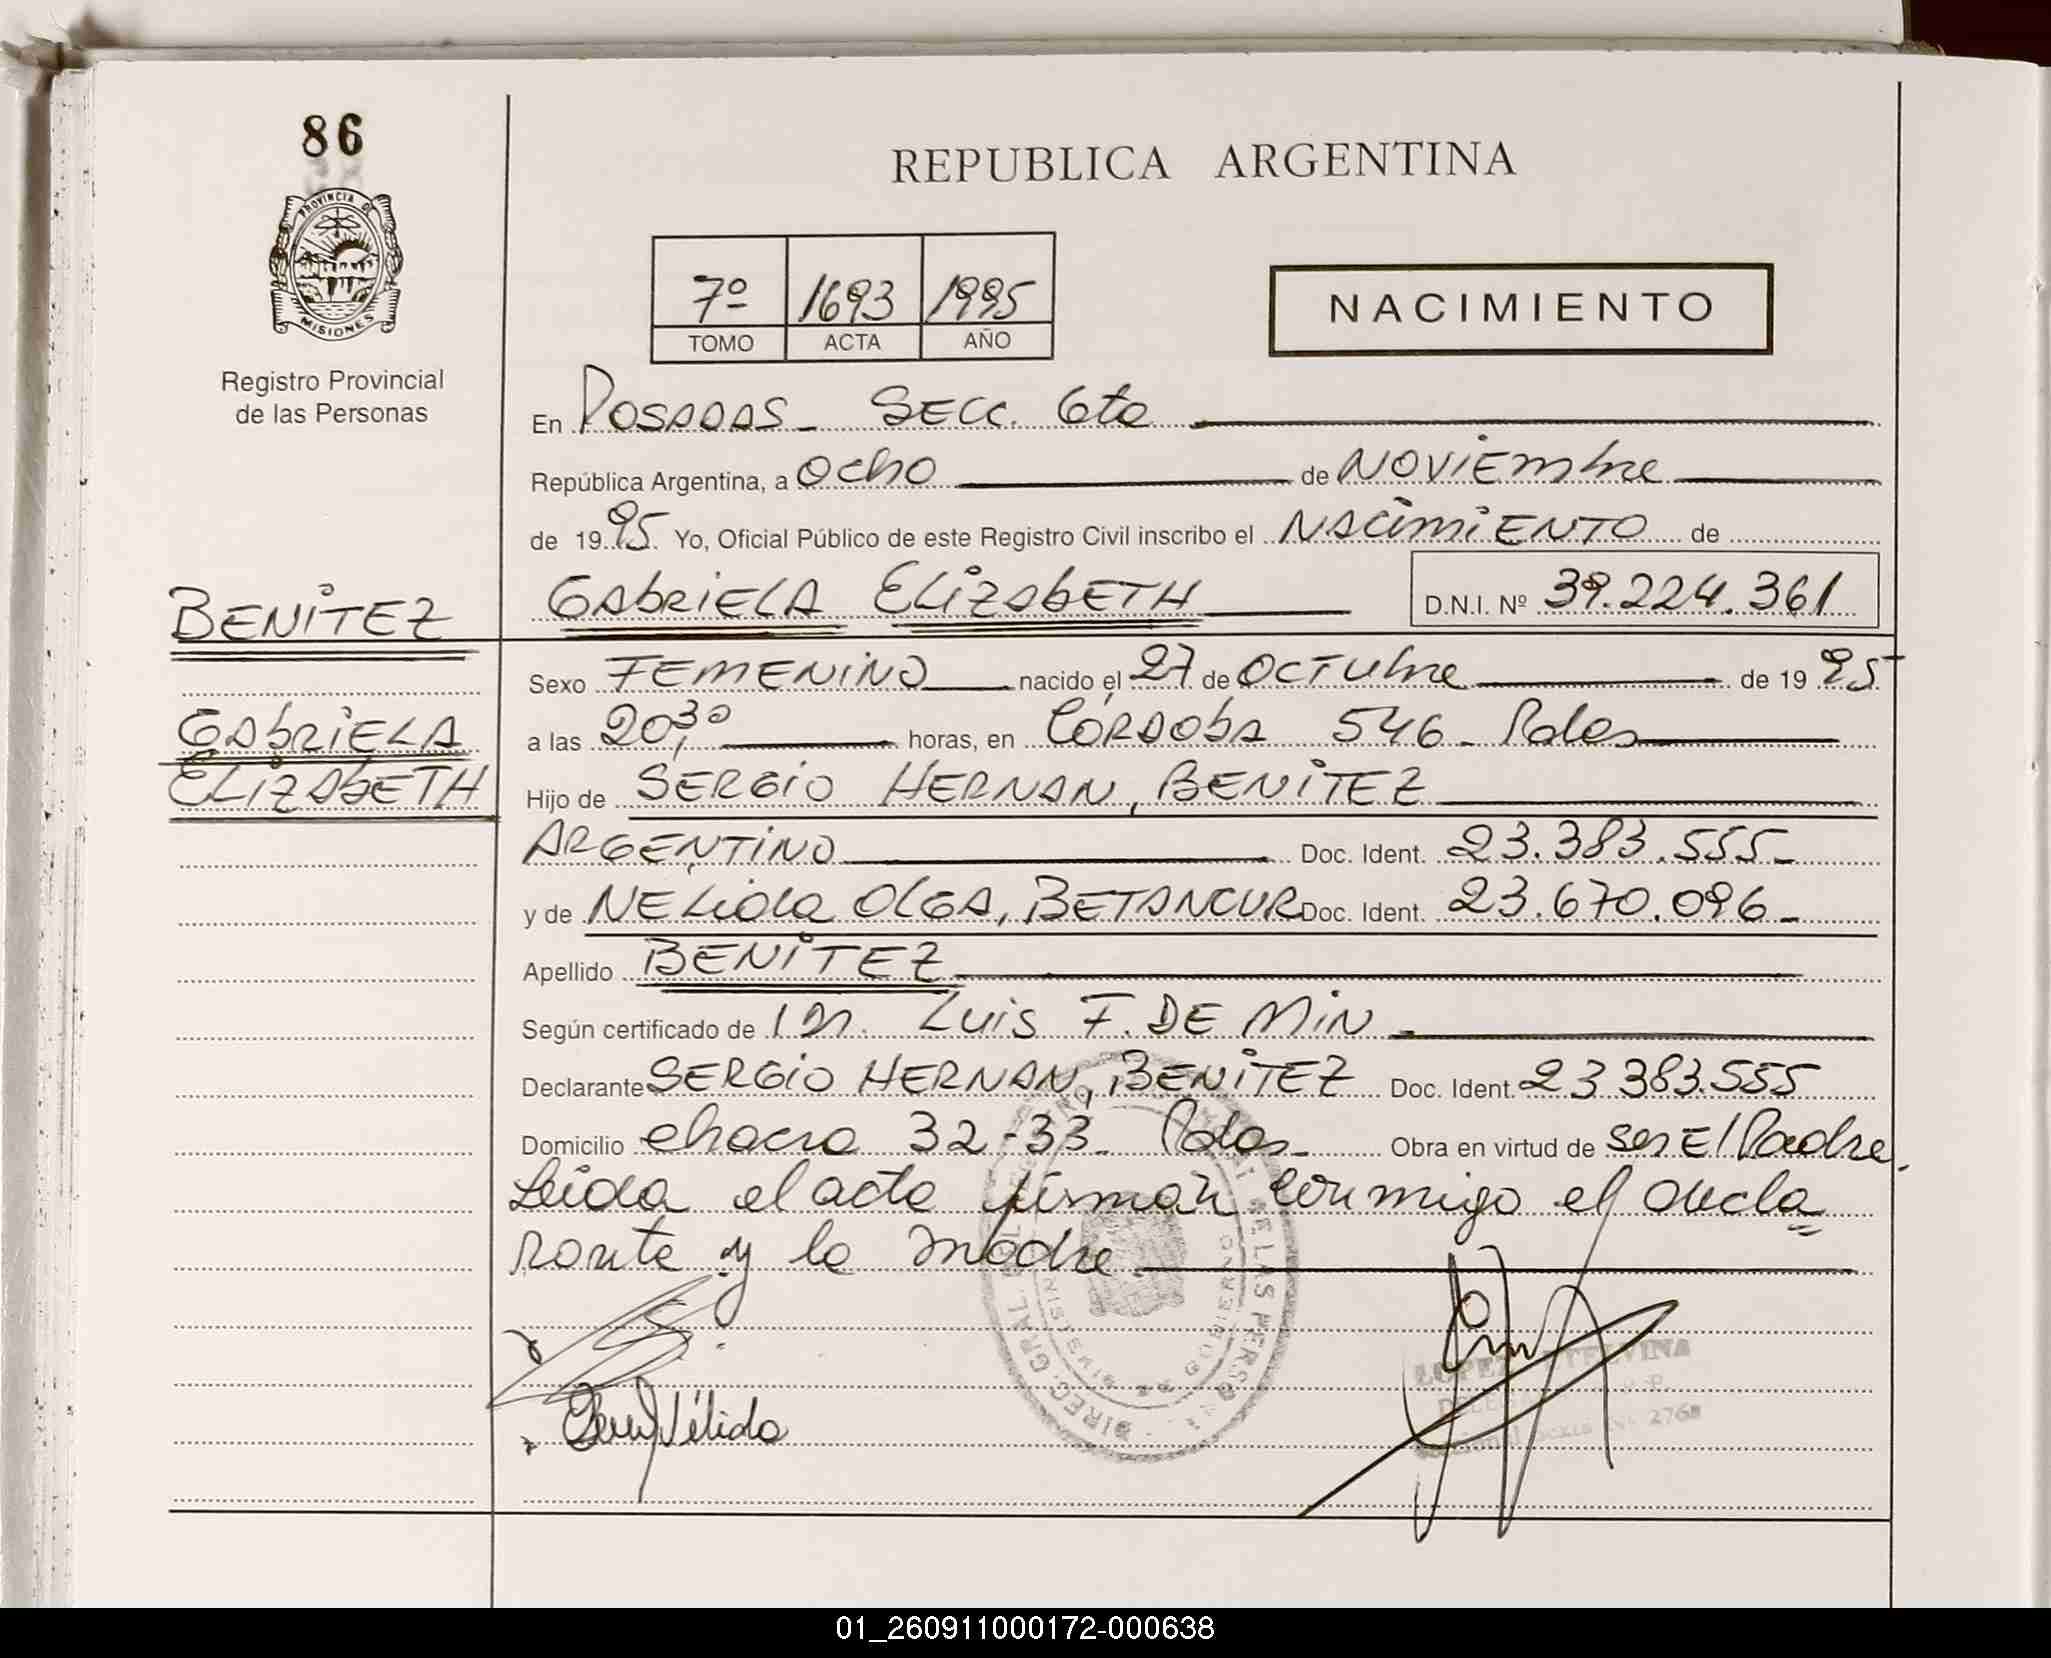 86
PROVINCIA DE
MISIONES
Registro Provincial
de las Personas
REPUBLICA ARGENTINA
7º 1693 1995
TOMO ACTA AÑO
NACIMIENTO
En POSADAS - SECC. 6ta
República Argentina, a ocho de NOVIEmbre
de 1995 Yo, Oficial Público de este Registro Civil inscribo el NACIMIENTO de
BENITEZ
GAbRIELA ELIZAbETH D.N.I. Nº 39.224.361
Sexo FEMENINO nacido el 27 de OCTUbre de 1995
GAbRIELA
a las 20,30 horas, en CÓRDObA 546 - Pdas
ELIZAbETH
Hijo de SERGIO HERNAN, BENITEZ
ARGENTINO Doc. Ident. 23.383.555-
y de NELida OLGA, BETANCUR Doc. Ident. 23.670.096-
Apellido BENITEZ
Según certificado de Dr. Luis F. DE MIN
Declarante SERGIO HERNAN, BENITEZ Doc. Ident. 23.383.555
Domicilio chacra 32-33- Pdas- Obra en virtud de ser El Padre.
Leida el acta firman conmigo el decla
rante y la madre
Nélida
DIREC. GRAL. DE LAS PERSO
MINISTERIO DE GOBIERNO
LOPEZ
2768
01_260911000172-000638